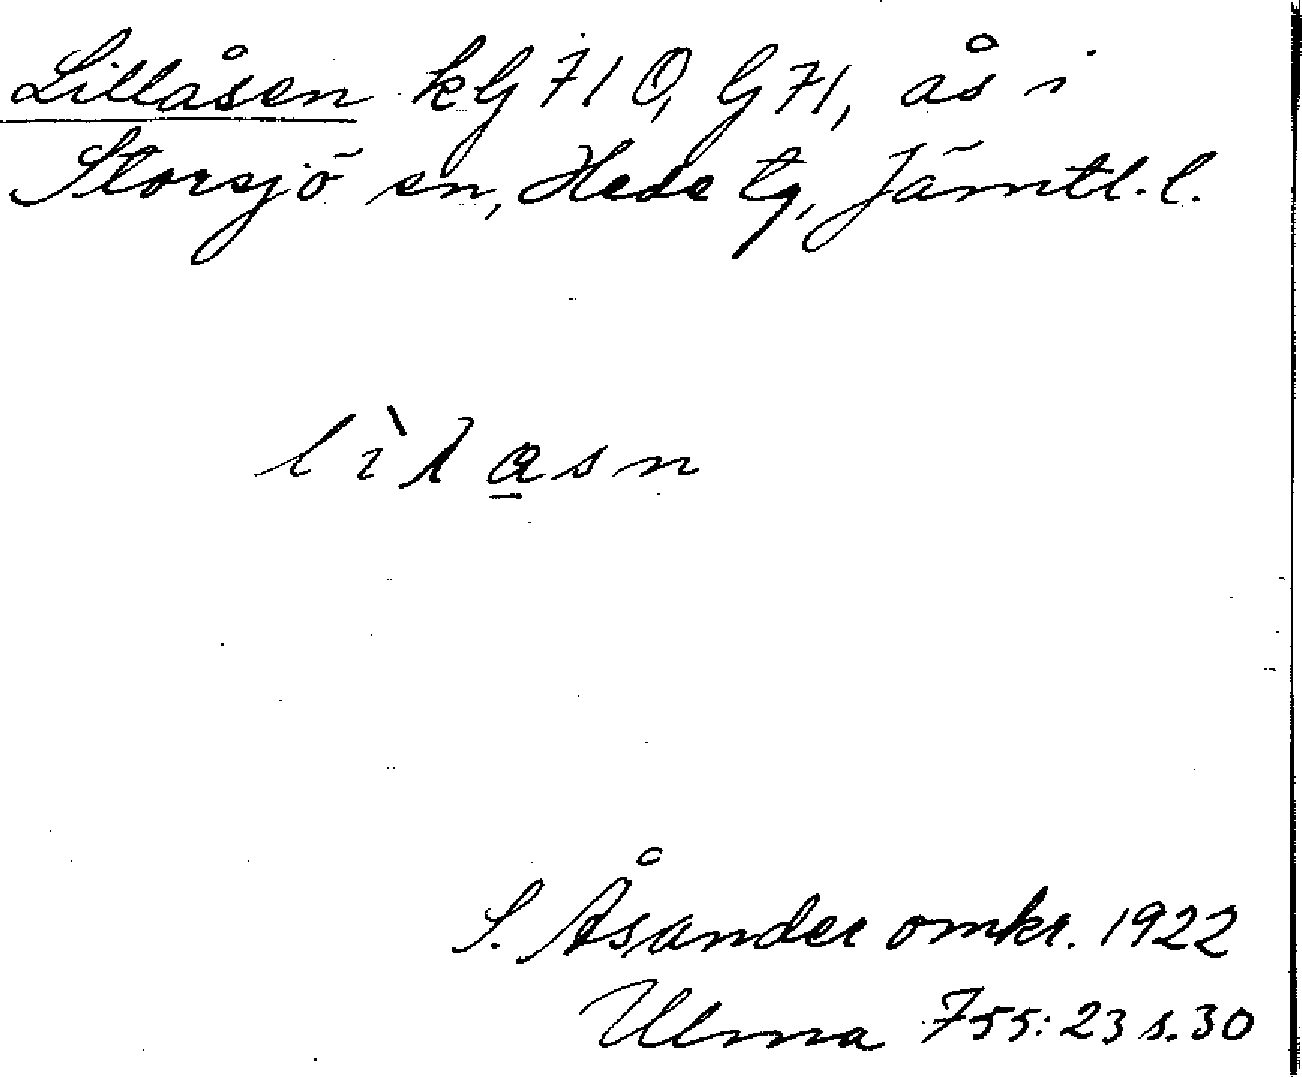 Lillåsen kG 71 Ö, G 71, ås i
Storsjö sn, Hede tg, Jämtl. l.
lìλa̱sn
S. Åsander omkr. 1922
Ulma 755:23 s. 30